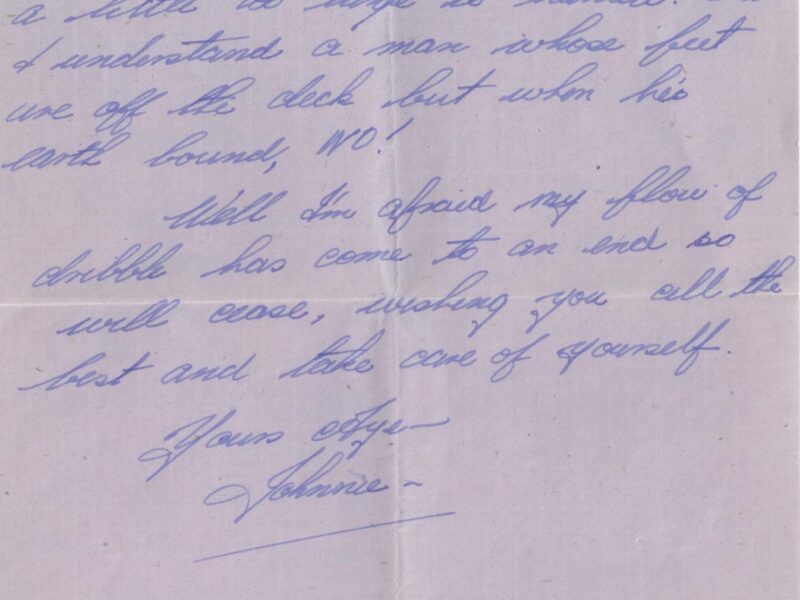 a little
I understand a man whose feet
are off the deck but when he's
earth bound, NO!
Well I'm afraid my flow of
dribble has come to an end so
will cease, wishing you all the
best and take care of yourself.
Yours Aye —
Johnnie —